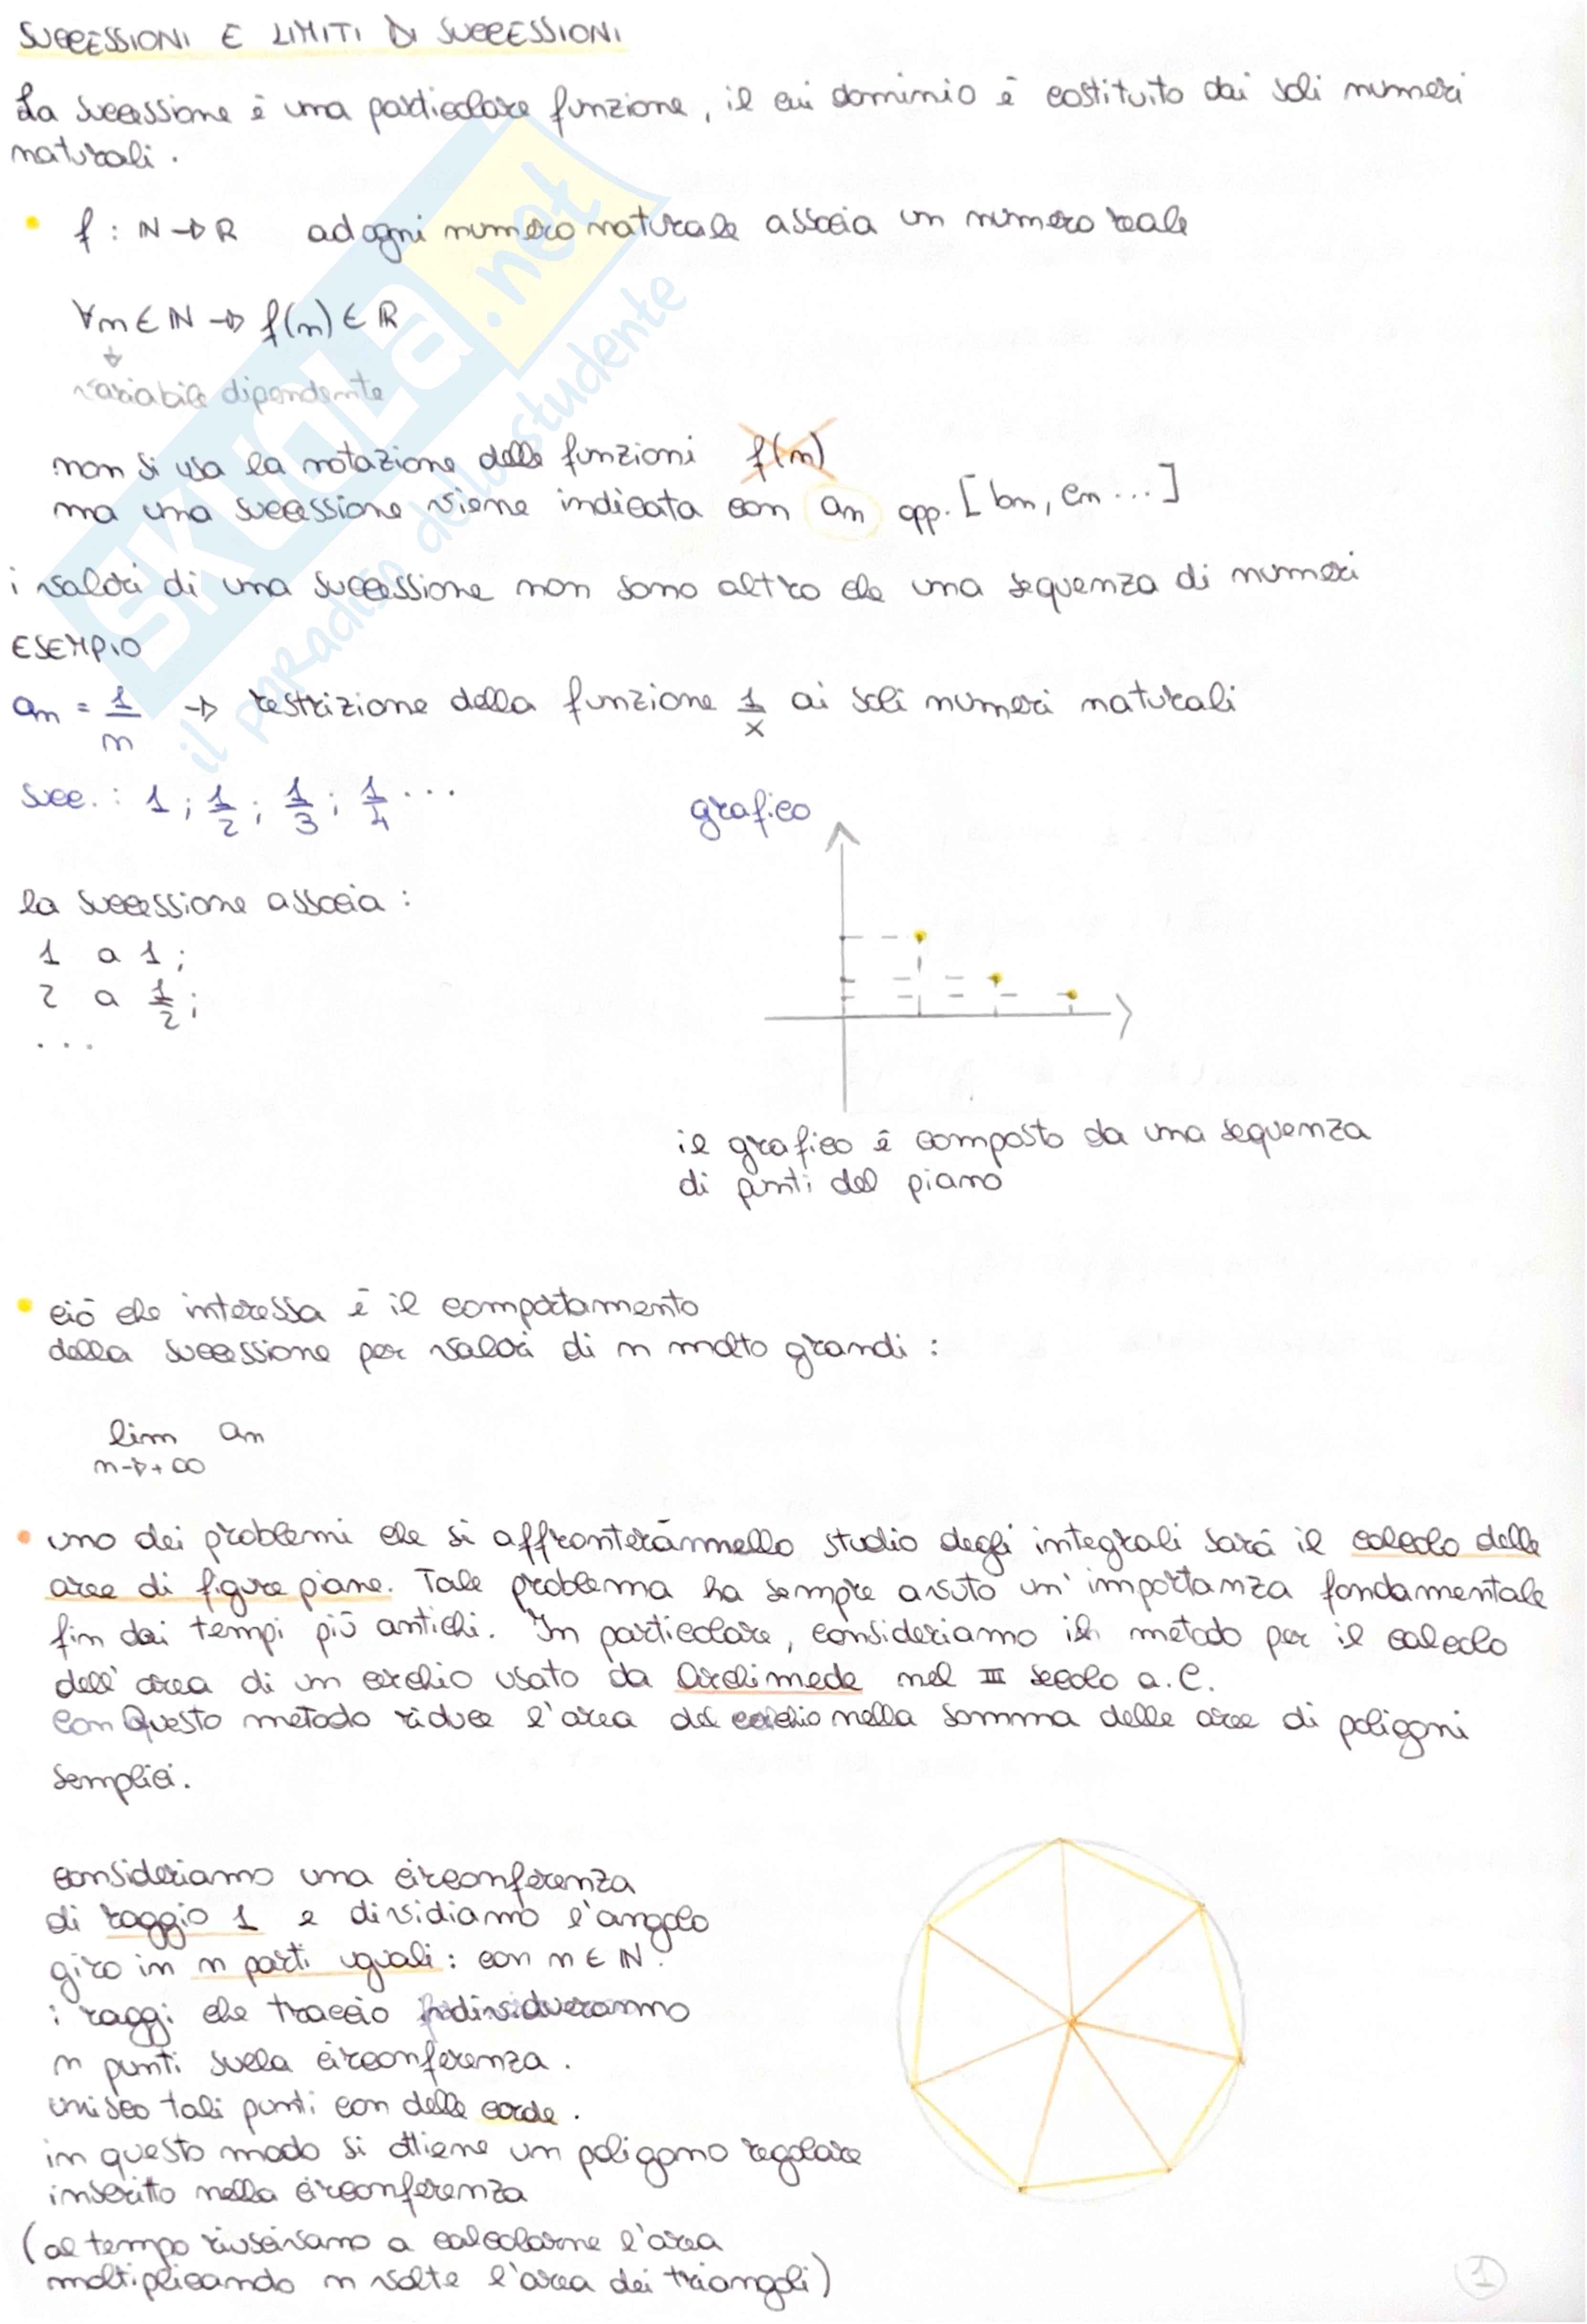 SUCCESSIONI E LIMITI DI SUCCESSIONI
La successione è una particolare funzione, il cui dominio è costituito dai soli numeri
naturali.
• f : ℕ → ℝ ad ogni numero naturale associa un numero reale
∀n ∈ ℕ → f(n) ∈ ℝ
↓
variabile dipendente
non si usa la notazione delle funzioni f(n)
ma una successione viene indicata con an opp. [bn, cn ...]
i valori di una successione non sono altro che una sequenza di numeri
ESEMPIO
an = 1/n → restrizione della funzione 1/x ai soli numeri naturali
succ. : 1 ; 1/2 ; 1/3 ; 1/4 ...
grafico
la successione associa :
1 a 1 ;
2 a 1/2 ;
...
il grafico è composto da una sequenza
di punti del piano
• ciò che interessa è il comportamento
della successione per valori di n molto grandi :
lim an
n→+∞
• uno dei problemi che si affronterà nello studio degli integrali sarà il calcolo delle
aree di figure piane. Tale problema ha sempre avuto un' importanza fondamentale
fin dai tempi più antichi. In particolare, consideriamo il metodo per il calcolo
dell' area di un cerchio usato da Archimede nel III secolo a.C.
Con Questo metodo riduce l'area del cerchio nella somma delle aree di poligoni
semplici.
consideriamo una circonferenza
di raggio 1 e dividiamo l'angolo
giro in n parti uguali : con n ∈ ℕ.
i raggi che traccio individueranno
n punti sulla circonferenza.
unisco tali punti con delle corde.
in questo modo si ottiene un poligono regolare
inscritto nella circonferenza
(al tempo riuscivano a calcolarne l'area
moltiplicando n volte l'area dei triangoli)
1
SKUOLA.net
il paradiso dello studente